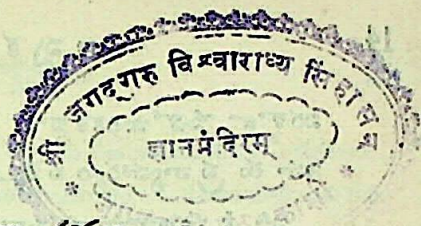 श्री जगद्गुरु विश्वाराध्य सिंहासन
ज्ञानमंदिरम्